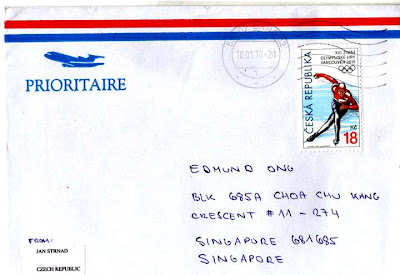 PRIORITAIRE
XXI. ZIMNÍ
OLYMPIJSKÉ HRY
VANCOUVER 2010
ČESKÁ REPUBLIKA
Kč
18
EDMUND ONG
BLK 685A CHOA CHU KANG
CRESCENT #11-274
SINGAPORE 681685
SINGAPORE
FROM:
JAN STRNAD
CZECH REPUBLIC